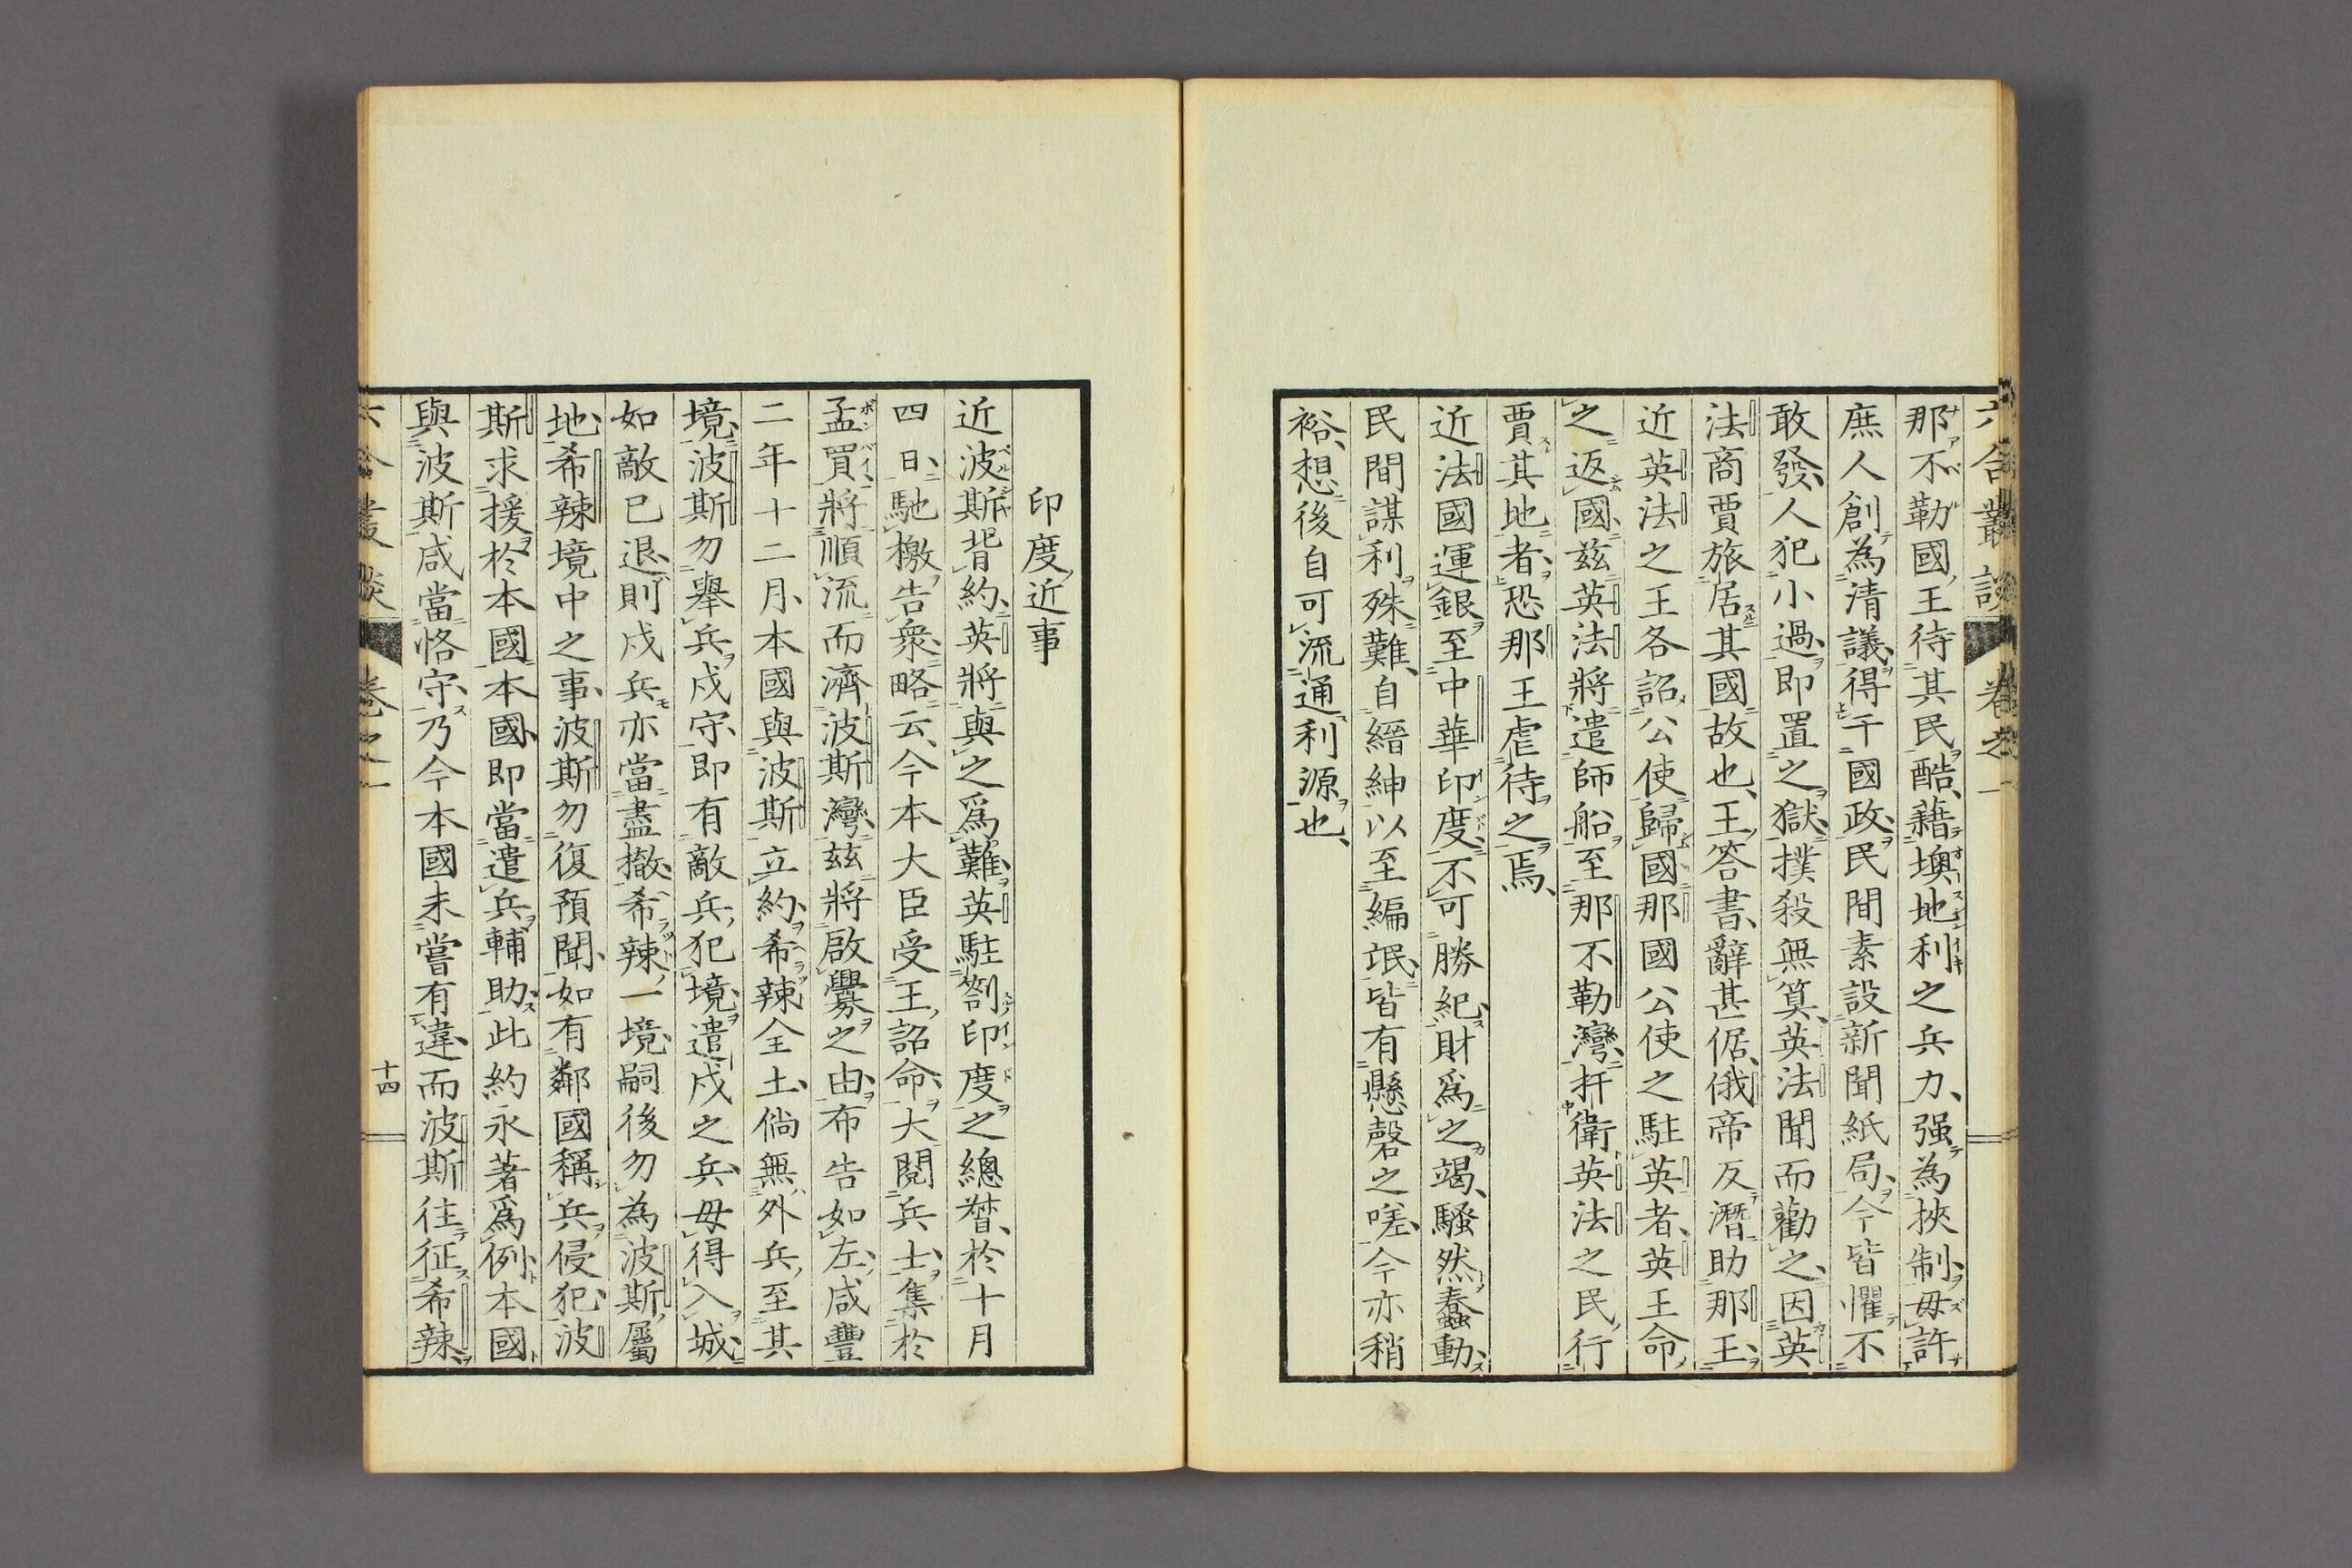 六合叢談 卷之一
那不勒國王待其民酷、藉墺地利之兵力、强為挾制、毋許
庶人創為清議、得干國政、民間素設新聞紙局、今皆懼不
敢發、人犯小過、即置之獄、撲殺無算、英法聞而勸之、因英
法商賈旅居其國故也、王答書、辭甚倨、俄帝反潛助那王、
近英法之王各詔公使歸國、那國公使之駐英者、英王命
之返國、茲英法將遣師船至那不勒灣、扞衛英法之民、行
賈其地者、恐那王虐待之焉、
近法國運銀至中華印度、不可勝紀、財爲之竭、騷然蠢動、
民間謀利殊難、自縉紳以至編氓、皆有懸磬之嗟、今亦稍
裕、想後自可流通利源也、
印度近事
近波斯背約、英將與之爲難、英駐劄印度之總督、於十月
四日、馳檄告衆、略云、今本大臣受王詔命、大閱兵士、集於
孟買、將順流而濟波斯灣、茲將啟釁之由、布告如左、咸豐
二年十二月、本國與波斯立約、希辣全土、倘無外兵、至其
境、波斯勿舉兵戍守、即有敵兵、犯境、遣戍之兵、毋得入城、
如敵已退、則戍兵亦當盡撤、希辣一境、嗣後勿為波斯屬
地、希辣境中之事、波斯勿復預聞、如有鄰國稱兵侵犯、波
斯求援於本國、本國即當遣兵輔助、此約永著爲例、本國
與波斯咸當恪守、乃今本國未嘗有違、而波斯往征希辣
六合叢談 卷之一 十四